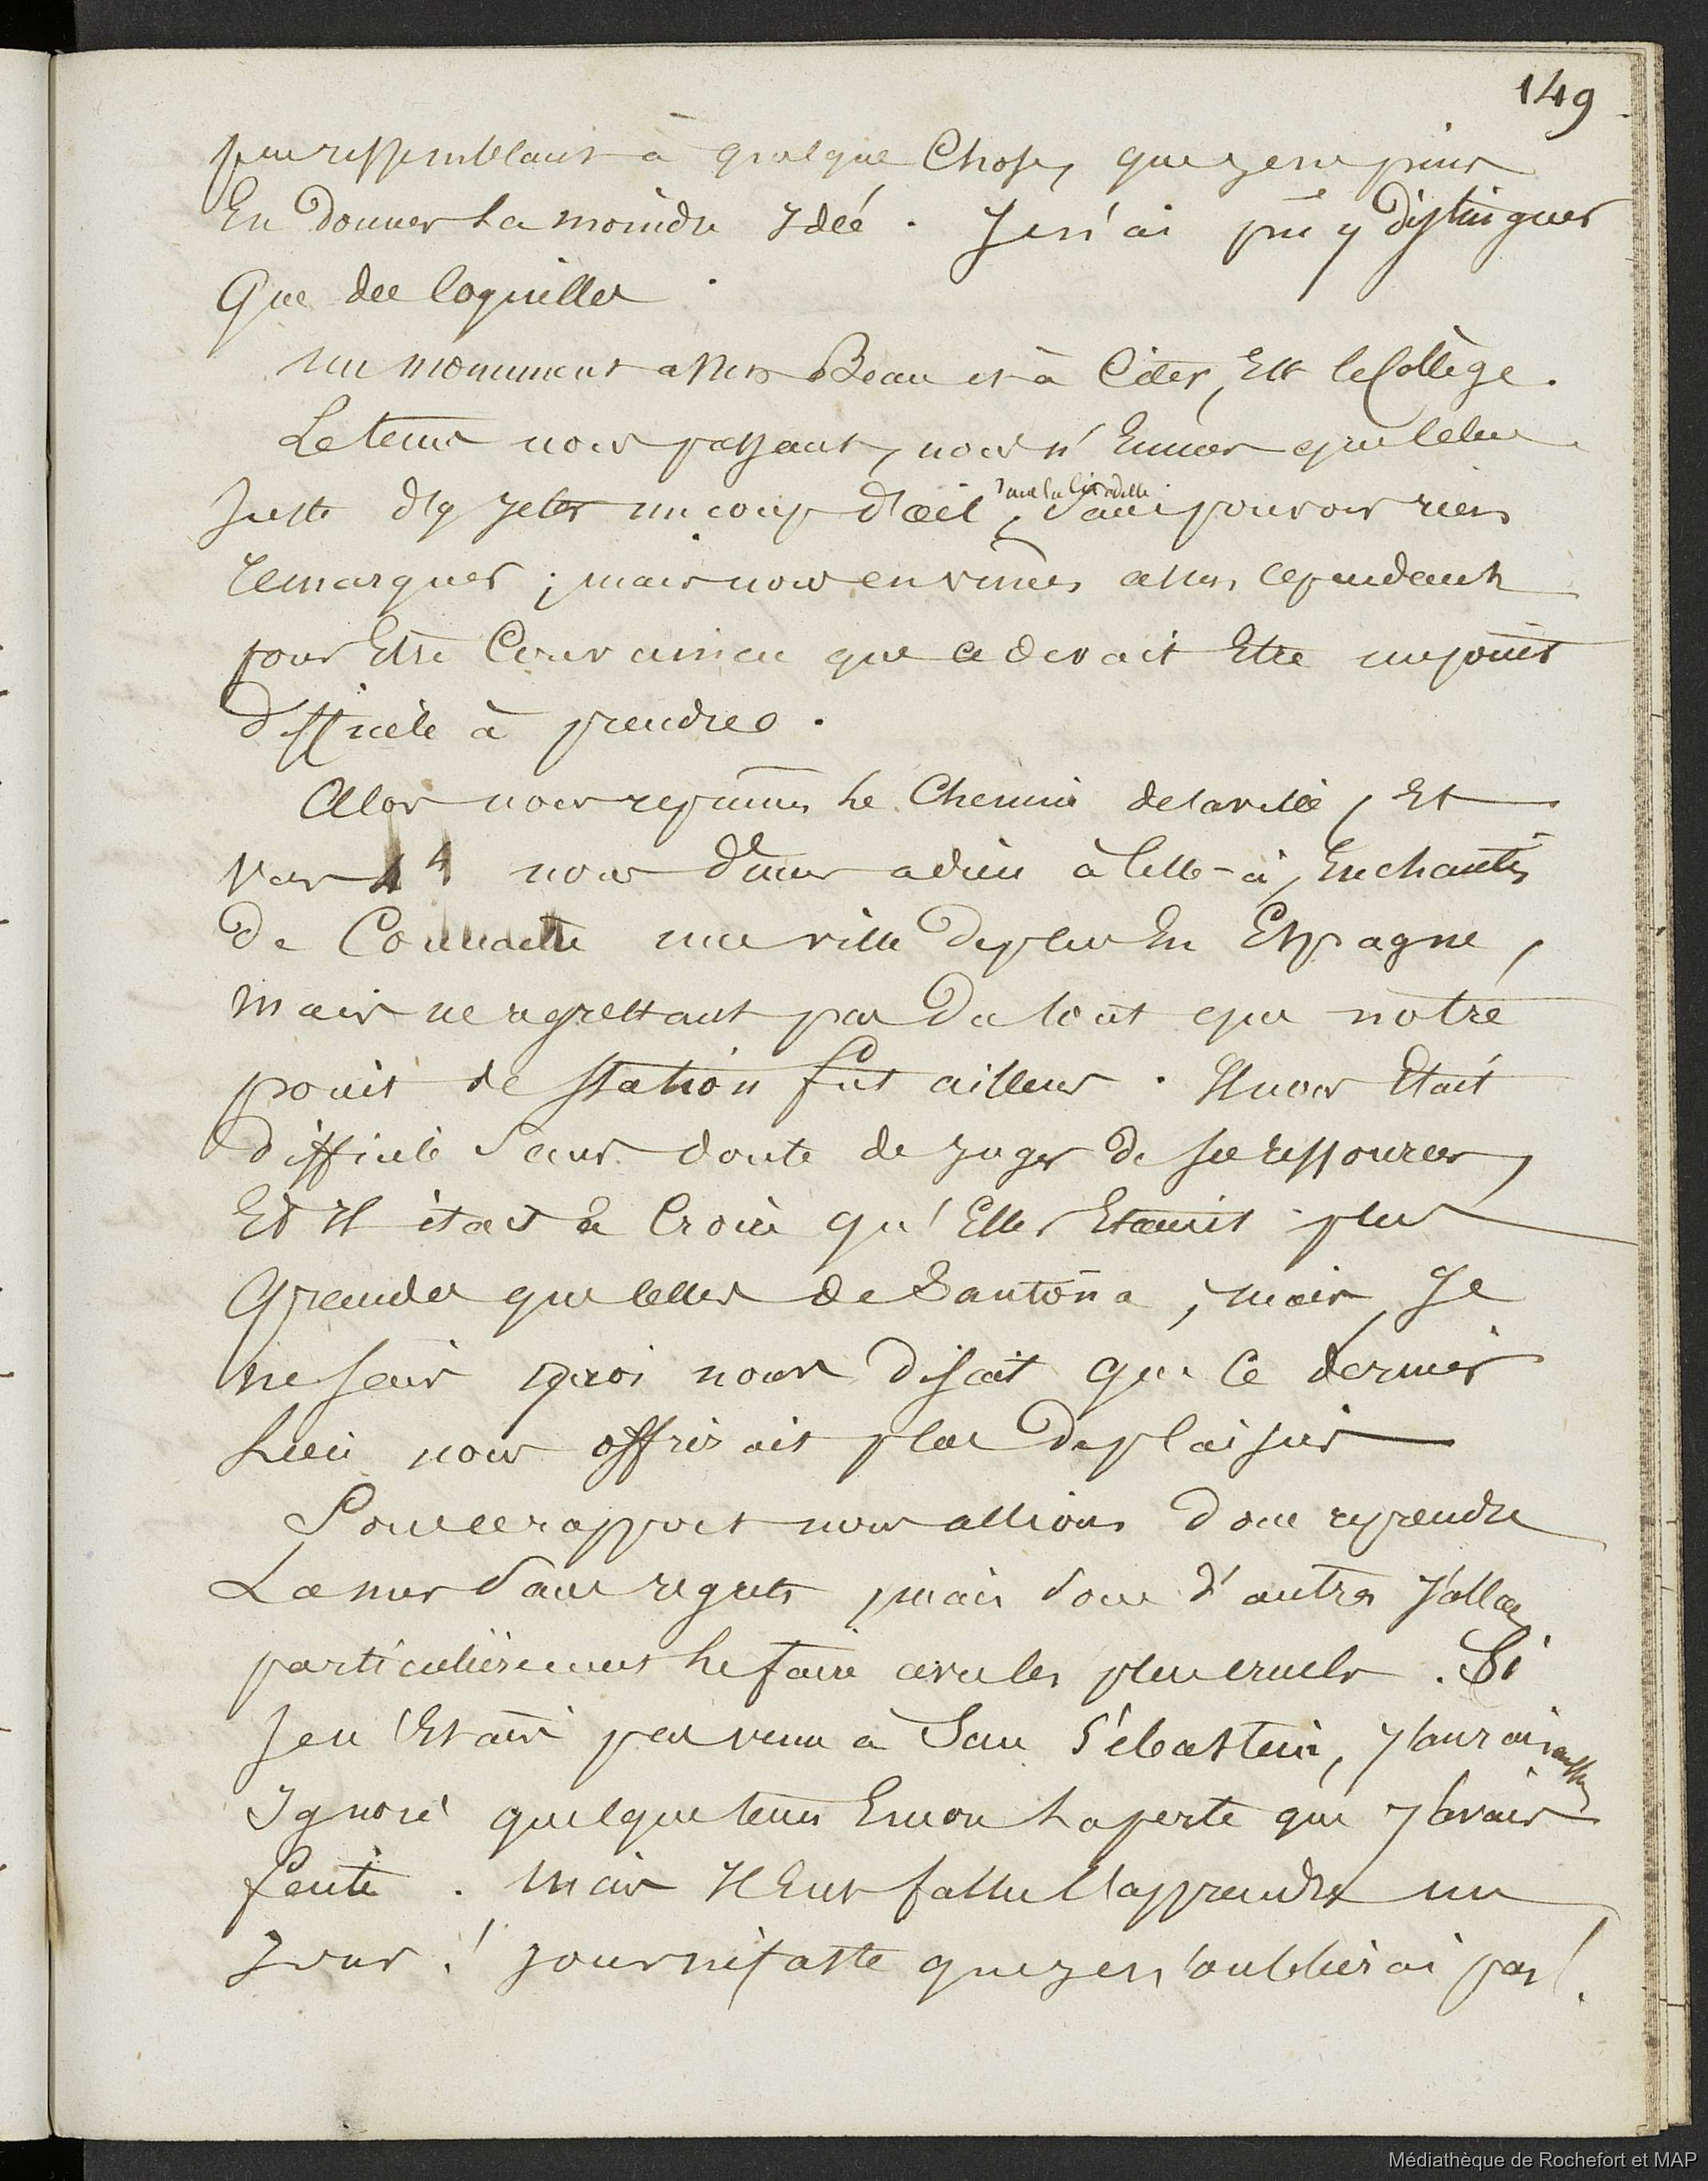 149
peu ressemblant à quelque Chose, que je ne puis
En donner la moindre Idée. Je n'ai pu y distinguer
Que des Coquilles.
un monument assez Beau et à Citer, Est le Collège.
Le tems nous pressant, nous n'Eumes que celui
juste d'y jeter un coup d'œil, sans pouvoir rien
sur la Citadelle
remarquer ; mais nous en vimes assez cependant
pour Etre Convaincu que ce devait Etre un point
difficile à prendre.
Alors nous reprimes le Chemin de la ville, Et
vers 4 nous dimes adieu à Celle-ci, Enchantés
de Connaitre une ville de plus En Espagne,
mais ne regrettant pas du tout que notre
point de station fut ailleurs. Il nous Etait
difficile sans doute de juger de ses ressources,
Et Il était à Croire qu'Elles Etaient plus
Grandes que celles de Santoña, mais, Je
ne sais quoi nous disait que Ce dernier
Lieu nous offrirait plus de plaisir
Sous ce rapport nous allions donc reprendre
La mer sans regrets, mais sous d'autres J'allais
particulièrement le faire avec les plus cruels. Si
Je n'Etais pas venu à San Sébastien, J'aurais
aussi
Ignoré quelque tems Encore la perte que J'avais
faite. Mais Il Eut fallu l'apprendre un
Jour ! jour néfaste que je n'oublierai pas !
Médiathèque de Rochefort et MAP